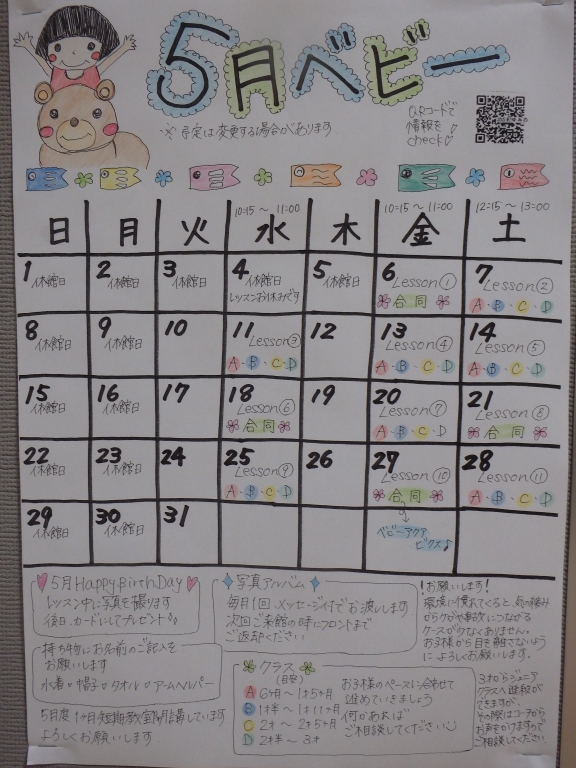 5月ベビー
※予定は変更する場合があります
QRコードで
情報を
check!
10:15～11:00
10:15～11:00
12:15～13:00
日 月 火 水 木 金 土
1 休館日
2 休館日
3 休館日
4 休館日
レッスンお休みです
5 休館日
6 Lesson①
合同
7 Lesson②
A・B・C・D
8 休館日
9 休館日
10
11 Lesson③
A・B・C・D
12
13 Lesson④
A・B・C・D
14 Lesson⑤
A・B・C・D
15 休館日
16 休館日
17
18 Lesson⑥
合同
19
20 Lesson⑦
A・B・C・D
21 Lesson⑧
合同
22 休館日
23 休館日
24
25 Lesson⑨
A・B・C・D
26
27 Lesson⑩
合同
28 Lesson⑪
A・B・C・D
29 休館日
30 休館日
31
ベビーアクア
ビクス♪
5月HappyBirthDay
レッスン中に写真を撮ります
後日、カードにしてプレゼント
持ち物にお名前のご記入を
お願いします
水着・帽子・タオル・アームヘルパー
5月度1ヶ月短期教室開講しています
よろしくお願いします
写真アルバム
毎月1回、メッセージ付でお渡しします
次回ご来館の時にフロントまで
ご返却ください
クラス
(目安)
A 6ヶ月～1才5ヶ月
B 1才半～1才11ヶ月
C 2才～2才5ヶ月
D 2才半～3才
お子様のペースに合わせて
進めていきましょう
何かあれば
ご相談してください
!お願いします!
環境に慣れてくると、気の緩み
からケガや事故につながる
ケースが少なくありません。
お子様から目を離さないように
よろしくお願いします。
3才からジュニア
クラスへ進級が
できますが、
その際はコーチから
お声をかけますので
ご相談してください